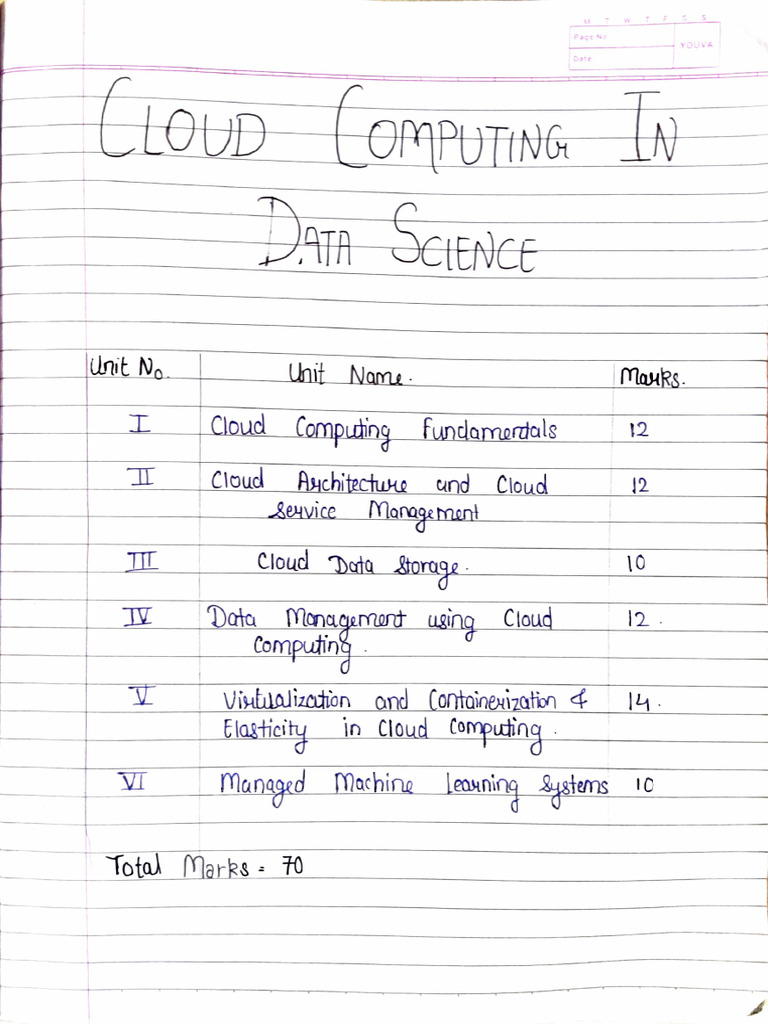 M T W T F S S
Page No
YOUVA
Date
CLOUD COMPUTING IN
DATA SCIENCE
Unit No. Unit Name. Marks.
I Cloud Computing Fundamentals 12
II Cloud Architecture and Cloud 12
Service Management
III Cloud Data Storage. 10
IV Data Management using Cloud 12.
Computing.
V Virtualization and Containerization & 14.
Elasticity in Cloud Computing.
VI Managed Machine Learning Systems 10
Total Marks = 70